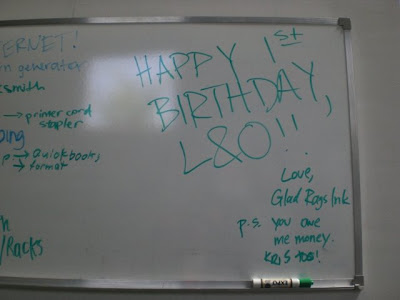 ERNET!
n generation
smith
→ primer cord
stapler
ping
p → Quickbooks
→ format
h
/Racks
HAPPY 1st
BIRTHDAY,
L&O!!
Love,
Glad Rags Ink
p.s. you owe
me money.
KRIS too!
EXPO